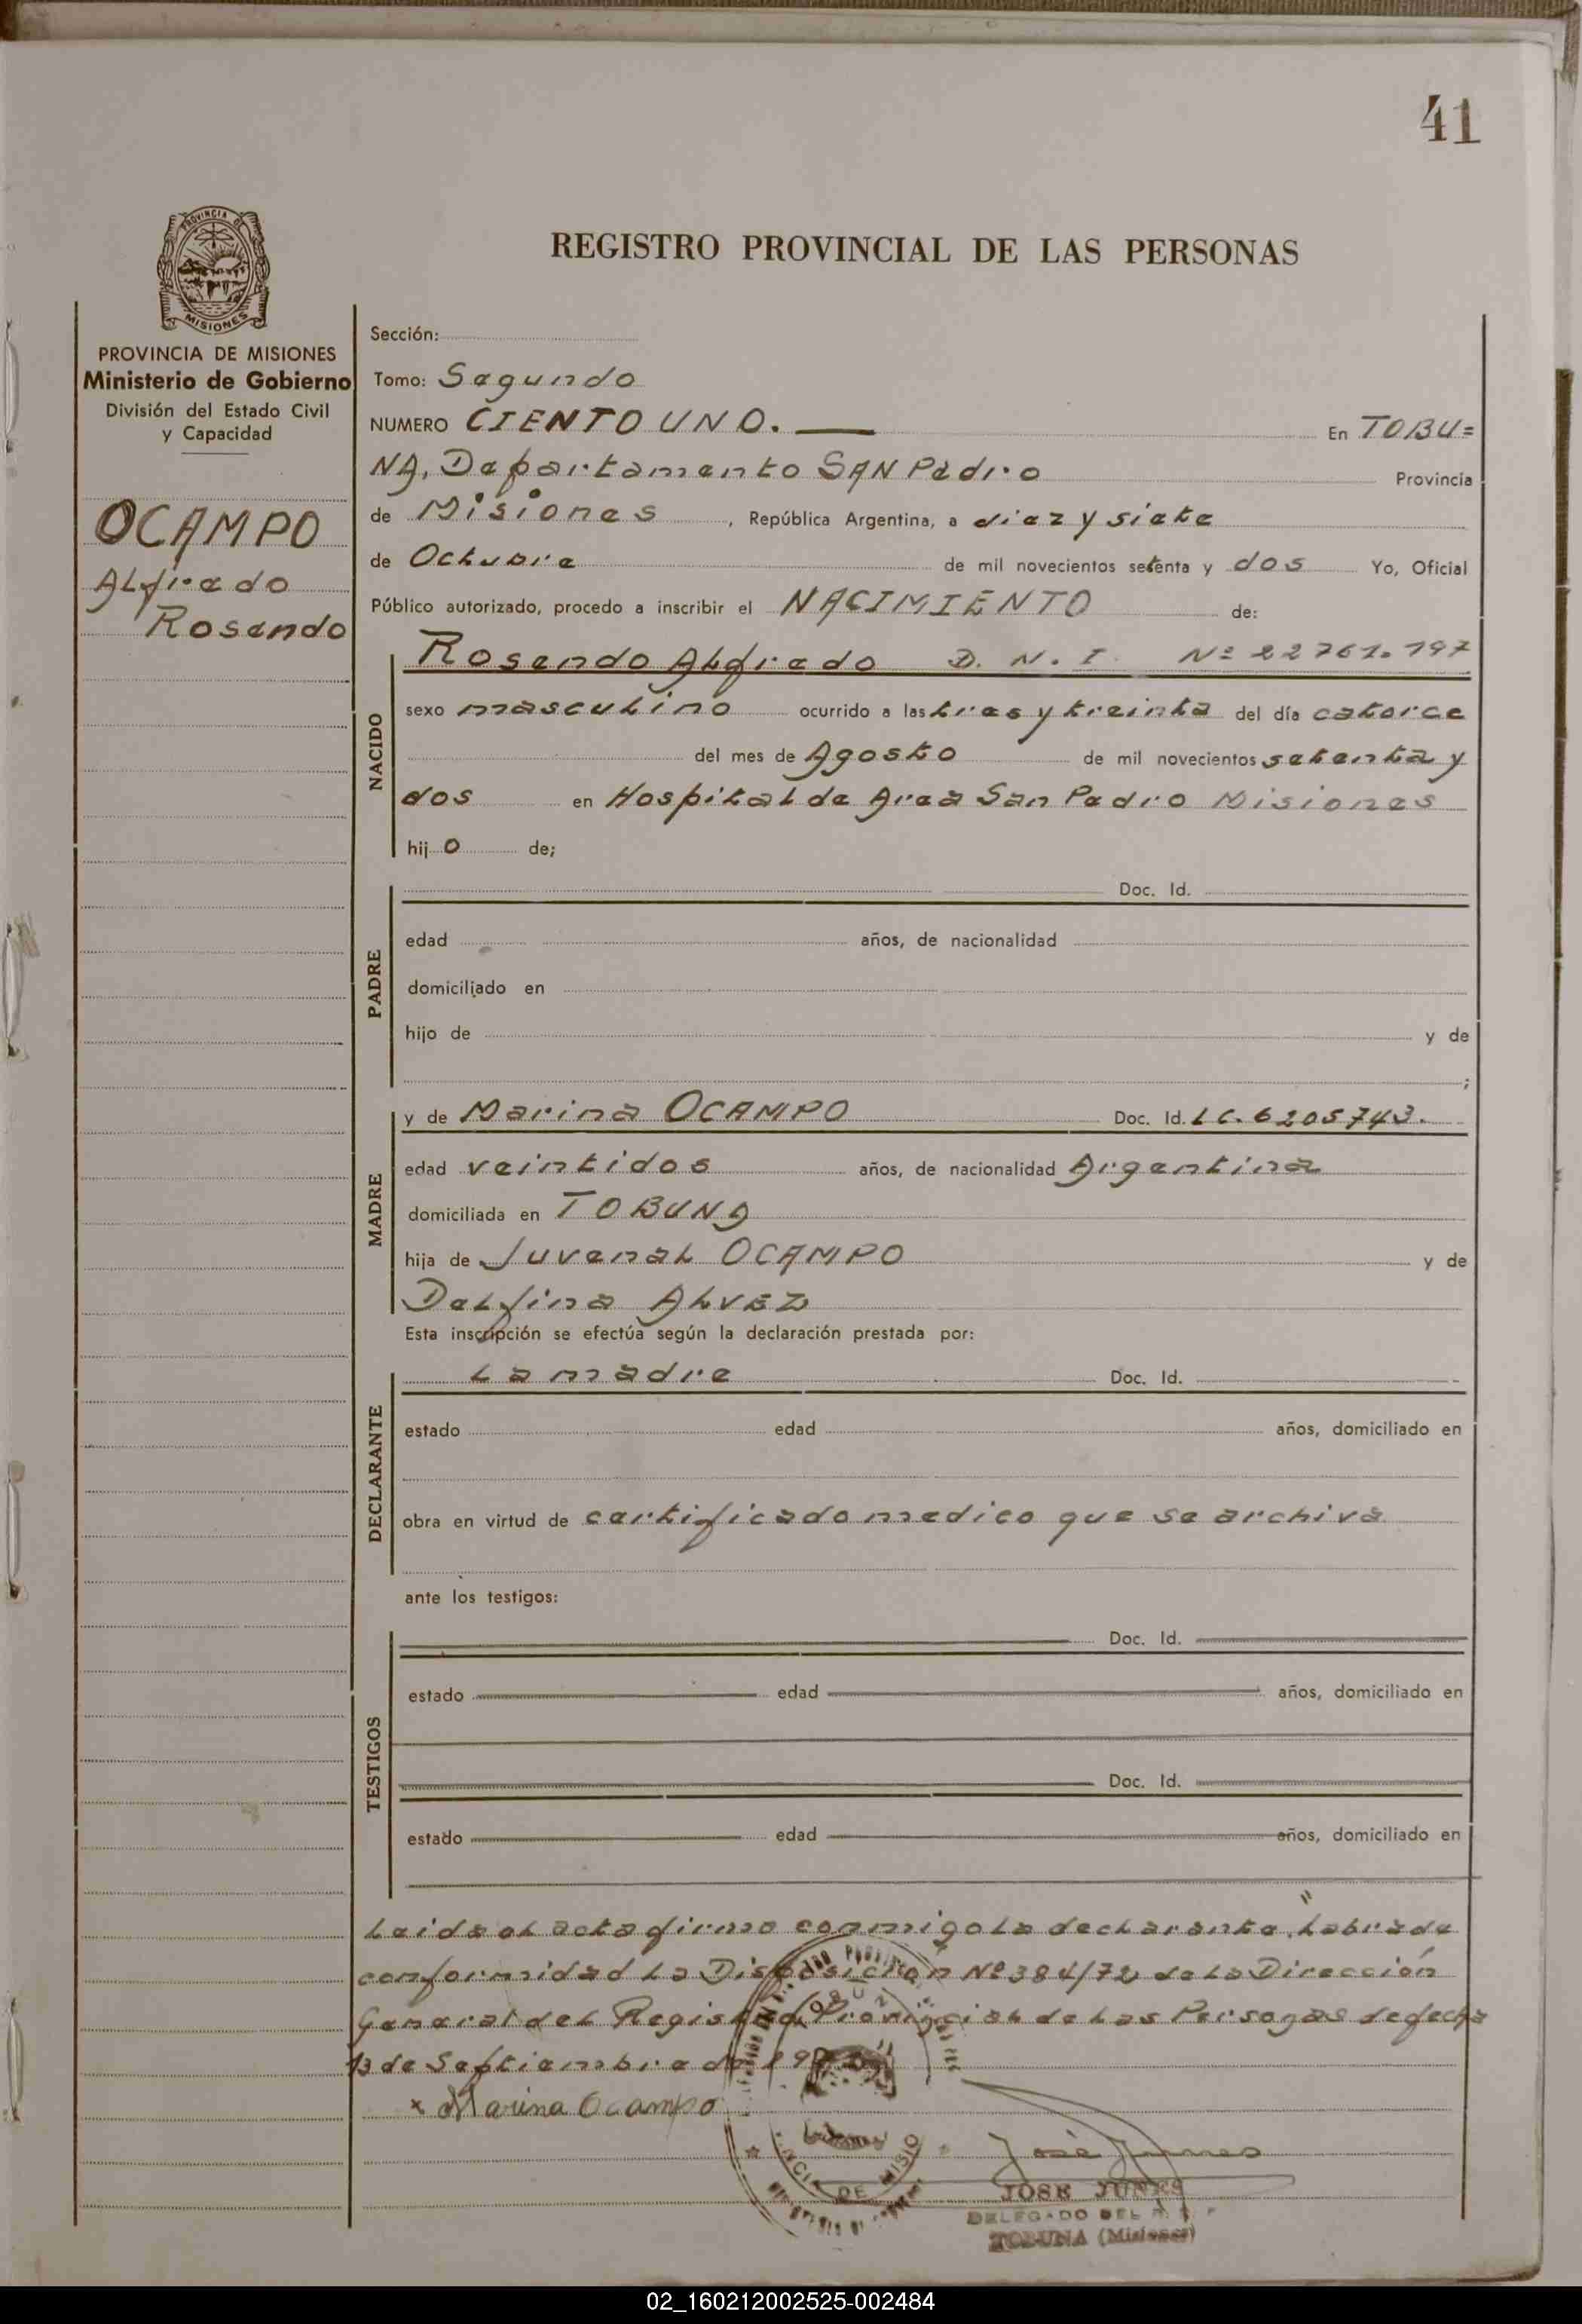 41
PROVINCIA DE
MISIONES
PROVINCIA DE MISIONES
Ministerio de Gobierno
División del Estado Civil
y Capacidad
OCAMPO
Alfredo
Rosendo
REGISTRO PROVINCIAL DE LAS PERSONAS
Sección:
Tomo: Segundo
NUMERO CIENTO UNO. — En TOBU=
NA, Departamento SAN Pedro Provincia
de Misiones, República Argentina, a diez y siete
de Octubre de mil novecientos setenta y dos Yo, Oficial
Público autorizado, procedo a inscribir el NACIMIENTO de:
NACIDO
Rosendo Alfredo D. N. I. Nº 22761.197
sexo masculino ocurrido a las tres y treinta del día catorce
del mes de Agosto de mil novecientos setenta y
dos en Hospital de Area San Pedro Misiones
hijo de;
PADRE
Doc. Id.
edad años, de nacionalidad
domiciliado en
hijo de y de
;
MADRE
y de Marina OCAMPO Doc. Id. LC. 6205743.
edad veintidos años, de nacionalidad Argentina
domiciliada en TOBUNA
hija de Juvenal OCAMPO y de
Delfina ALVEZ
Esta inscripción se efectúa según la declaración prestada por:
DECLARANTE
La madre Doc. Id.
estado edad años, domiciliado en
obra en virtud de certificado medico que se archiva
ante los testigos:
TESTIGOS
Doc. Id.
estado edad años, domiciliado en
Doc. Id.
estado edad años, domiciliado en
Leida el acta firmo conmigo la declarante, "Labrada
conformidad la Disposición Nº 384/72 de la Dirección
General del Registro Provincial de las Personas de fecha
13 de Septiembre de
x Marina Ocampo
José Junes
JOSE JUNES
DELEGADO DEL R. P.
TOBUNA (Misiones)
02_160212002525-002484